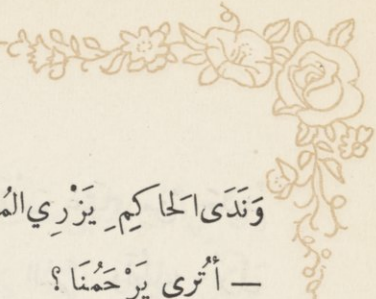 وَنَدَى الحاكِمِ يَزْرِي المُ
— أَتُرى يَرْحَمُنَا؟